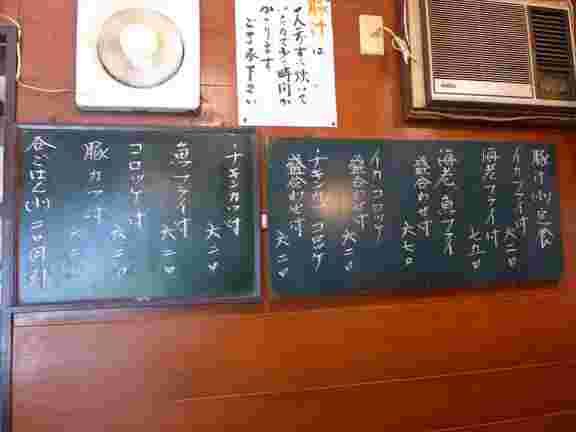 豚汁は
一人前ずつ炊いて
いるので少し時間が
かかります
ご了承下さい
豚汁小定食
イカフライ付 六二〇
海老フライ付 七五〇
海老・魚フライ
盛合わせ付 六七〇
イカ・コロッケ
盛合わせ付 六二〇
チキンカツ・コロッケ
盛合わせ付 六二〇
チキンカツ付 六二〇
魚フライ付 六二〇
コロッケ付 六二〇
豚カツ付 六二〇
各ごはん小 二〇円引